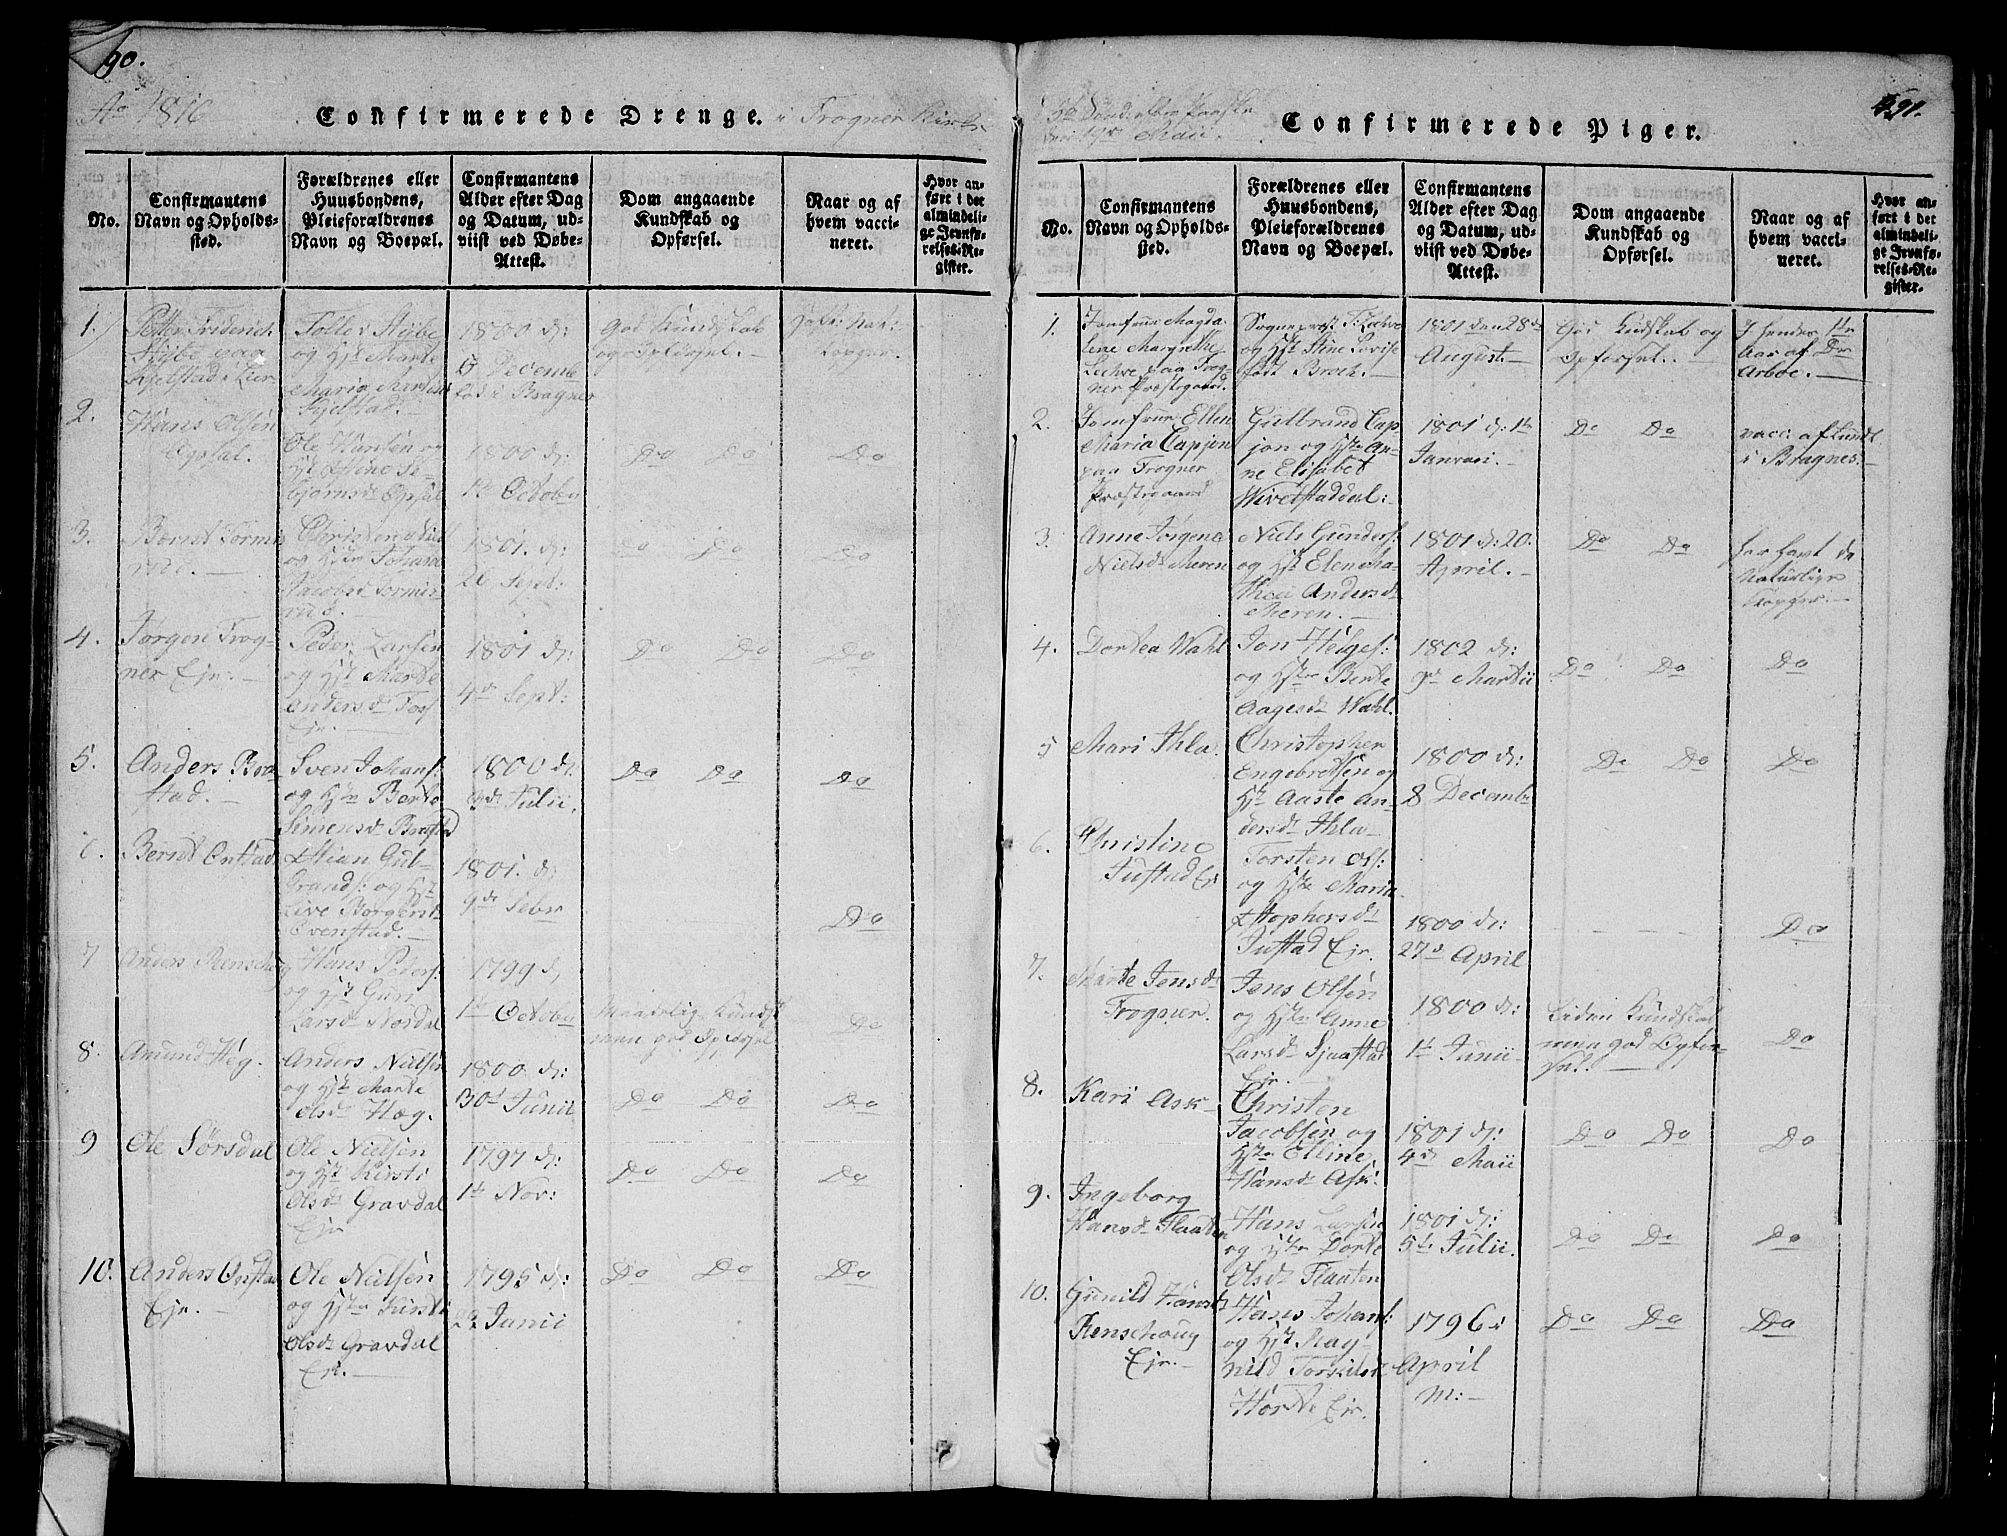 90.
Ao 1816
Confirmerede Drenge. i Trogner Kirke
No.
Confirmantens
Navn og Opholds-
sted.
Forældrenes eller
Huusbondens,
Pleieforældrenes
Navn og Boepæl.
Confirmantens
Alder efter Dag
og Datum, ud-
viist ved Døbe-
Attest.
Dom angaaende
Kundskab og
Opførsel.
Naar og af
hvem vacci-
neret.
Hvor an-
ført i det
almindeli-
ge Jevnfø-
relses-Re-
gister.
1.
og
Marie
1800 d:
Decemb
fød i Bragnes
God Kundskab
og Opførsel.
2.
Hans Olsen
Opsal.
Ole Hansen og
Opsal
1800 d:
1te October
Do Do
Do
3.
og Hstr Johane
1801. d:
26 Sept:
Do Do
Do
4.
Jørgen Trog-
ner Eje:
Peder Larsen
og Hst Marte
Anders d: Foss
Eje.
1801 d:
4de Sept:
Do Do
Do
5.
Anders Bra
stad.
Sven Johans:
og Hstr Berte
Simens d:
1800 d:
Julii
Do Do
Do
Bernt
Gul-
brands: og Hst
Live
Evenstad.
1801. d:
9de Febr
Do
7
Anders Renschoug
Hans Peders:
og Hst Guri
Lars d: Nordal
1799 d,
1te October
Maadelig Kundsk
men god Opførsel
Do
8.
Amund Høg.
Anders Nielsen
og Hstr Marte
Ols d: Høg.
1800. d:
30te Junii
Do Do
Do
9
Ole Sørsdal
Ole Nielsen
og Hstr Kirsti
Ols d: Gravdal
Eje
1797 d:
1te Nov:
Do Do
Do
10.
Anders Onsta
Eje.
Ole Nielsen
og Hstr Kirsti
Ols d: Gravdal
Eje.
1795 d:
Junii
Do Do
Do
91.
Maii.
Confirmerede Piger.
No.
Confirmantens
Navn og Opholds-
sted.
Forældrenes eller
Huusbondens,
Pleieforældrenes
Navn og Boepæl.
Confirmantens
Alder efter Dag
og Datum, ud-
viist ved Døbe-
Attest.
Dom angaaende
Kundskab og
Opførsel.
Naar og af
hvem vacci-
neret.
Hvor an-
ført i det
almindeli-
ge Jevnfø-
relses-Re-
gister.
1.
Jomfrue Magda-
lene Margrethe
paa Trog-
ner Præstegaard.
Sogneprest
og Hst Stine Lovise
født Broch.
1801 den 28de
August.
God Kundskab og
Opførsel.
I hendes 1te
Aar af Dr
Arboe.
2.
Jomfrue Ellen
Maria Capjon
paa Trogner
Præstegaard
Gulbrand Cap-
jon og Hstr An-
ne Elisabet
1801 d: 1te
Januari.
Do Do
vacc: af Lund
i Bragnes:
3.
Anne Jørgene
Niels d: Meren
Niels Gunders:
og Hst Elen Ma-
thea Anders d:
Meren.
1801 d: 20.
April.
Do Do
har havt de
Naturlige
Kopper.
4.
Dortea Wahl
Jon Helges:
og Hstr Berte
Aages d: Wahl.
1802 d:
Martii
Do Do
Do
5
Mari Ihla.
Christopher
Engebretsen og
Hstr Aaste An-
ders d: Ihla
1800 d:
8 Decemb
Do Do
Do
6.
Christine
Justad Ej
Torsten Ols:
og Hstr Maria
Justad Eje.
1800 d:
27de April
Do
7.
Marte Jens d:
Trogner.
Jens Olsen
og Hstr Anne
Lars d: Sjaastad
Eje.
1800 d:
1te Junii
Liden Kundskab
men god Opfør-
sel.
Do
8.
Kari Ask
Christen
Jacobsen og
Hstr Elline
Hans d: Ask.
1801 d:
4de Maii
Do Do
Do
9.
Ingeborg
Hans d: Flaaten
Hans Larsen
og Hstr Dorte
Ols d: Flaaten
1801 d:
5te Julii.
Do Do
Do
10.
Gunild Hans d:
Renschoug
Eje.
Hans Johans:
og Hst Rag-
nild
Eje.
1796 i
April
M:
Do Do
Do